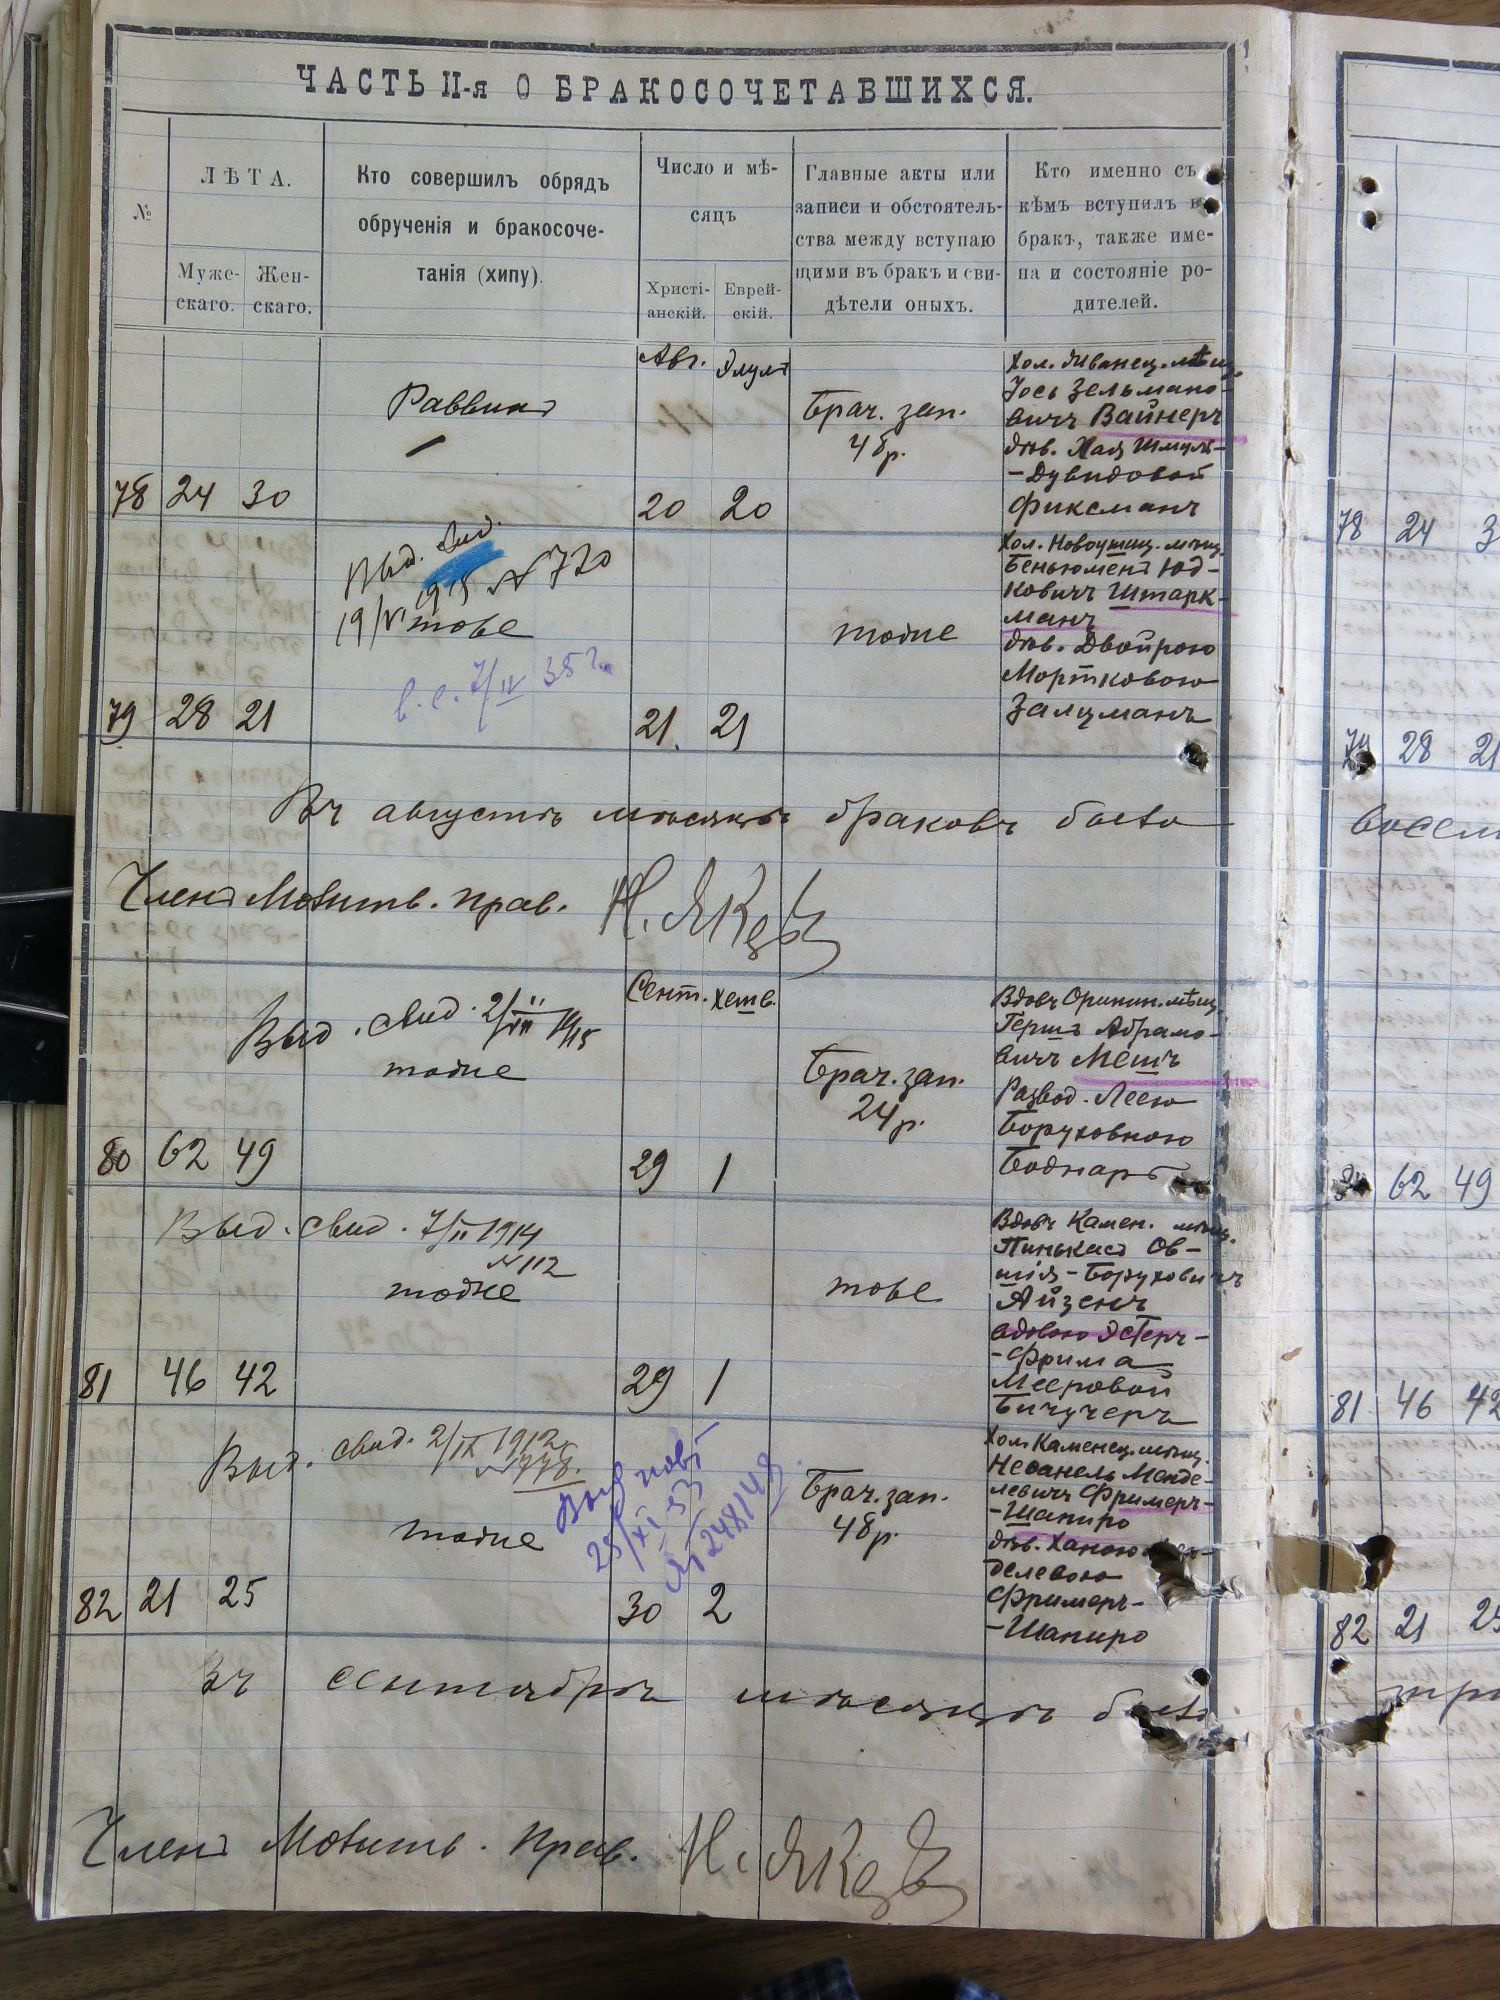 ЧАСТЬ II-я О БРАКОСОЧЕТАВШИХСЯ.
№
ЛѢТА.
Муже-
скаго.
Жен-
скаго.
Кто совершилъ обрядъ
обрученія и бракосоче-
танія (хипу).
Число и мѣ-
сяцъ
Христі-
анскій.
Еврей-
скій.
Главные акты или
записи и обстоятель-
ства между вступаю
щими въ бракъ и сви-
дѣтели оныхъ.
Кто именно съ
кѣмъ вступилъ в
бракъ, также име-
на и состояніе ро-
дителей.
78 24 30
Раввинъ
Авг. Элулъ
20 20
Брач. зап.
48 р.
Хол. Жванец. мѣщ.
Іось Зельмано-
вичъ Вайнеръ
дѣв. Хая Шмуль-
-Дувидовой
Фиксманъ
79 28 21
Выд. свид.
19/V 1915 № 720
тоже
в. с. 7/IV 35 г.
21. 21
тоже
Хол. Новоушиц. мѣщ.
Беньюменъ Юд-
ковичъ Штарк-
манъ
дѣв. Двойрою
Мортковою
Залцманъ
Въ августѣ мѣсяцѣ браковъ было
Членъ Молитв. прав. Н. Якоб
80 62 49
Выд. свид.
тоже
Сент. Хешв.
29 1
Брач. зап.
24 р.
Вдовъ Оринин. мѣщ.
Гершъ Абрамо-
вичъ Мешъ
Развод. Леею
Боруховною
Боднаръ
81 46 42
Выд. свид. 7/II 1914
№ 112
тоже
29 1
тоже
Вдовъ Камен. мѣщ.
Пинькасъ Ов-
шія-Боруховичъ
Айзенъ
вдовою Эстеръ-
-Фрима
Мееровой
Бичучеръ
82 21 25
Выд. свид. 2/IX 1912
№ 778.
тоже
Выд. повт
25/XI 53
№ 248148
30 2
Брач. зап.
48 р.
Хол. Каменец. мѣщ.
Несанель Менде-
левичъ Фримеръ-
-Шапиро
дѣв. Ханою
делевою
Фримеръ-
-Шапиро
Въ сентябрѣ мѣсяцѣ было
Членъ Молитв. Прав. Н. Якоб
78 24 3
79 28 21
восем
80 62 49
81 46 42
82 21 25
тр